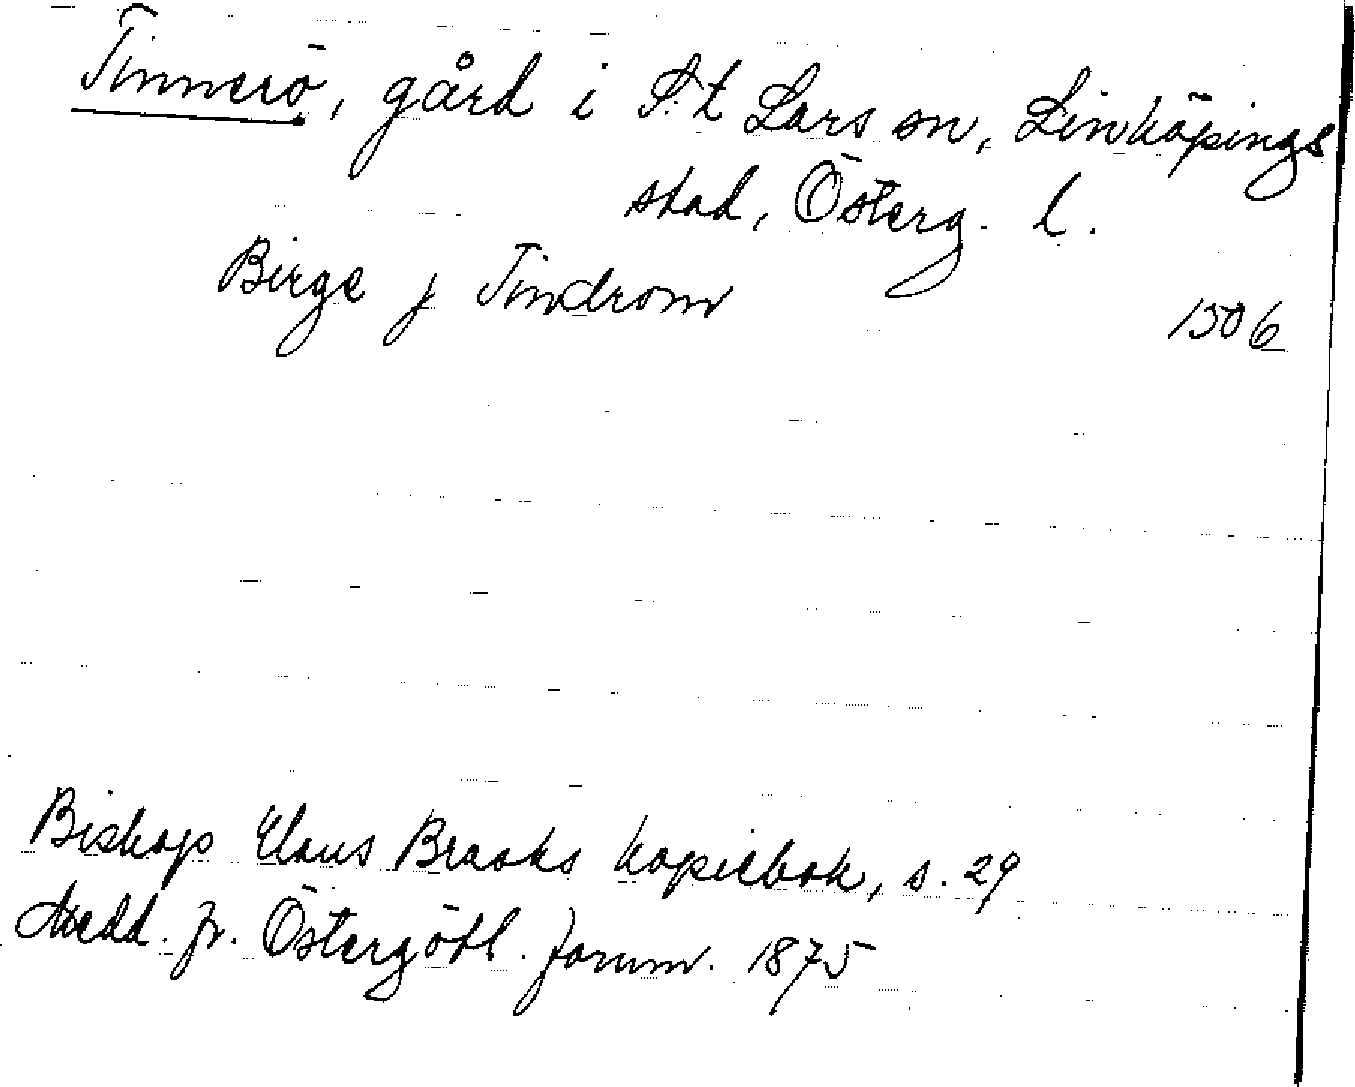 Tinnerö, gård i S:t Lars sn, Linköpings
stad, Österg. l.
Birge j Tindrom 1506
Biskop Claus Brasks kopiebok, s. 29
Medd. fr. Östergötl. fornm. 1875